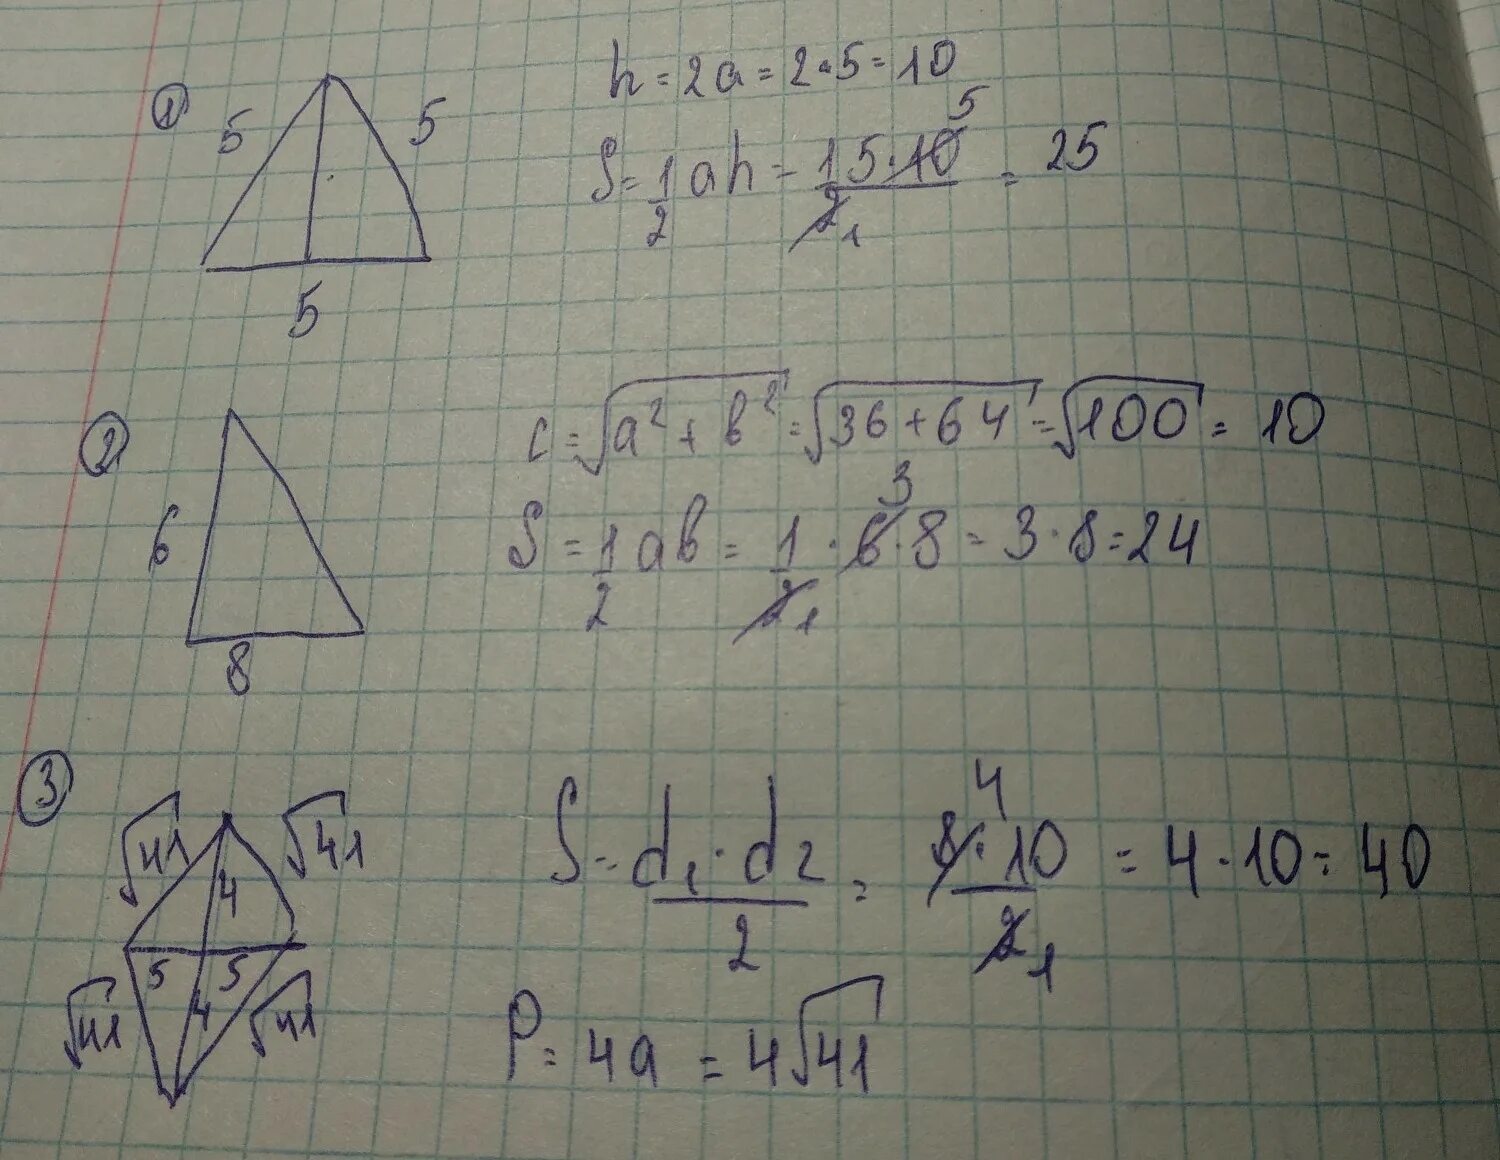 ① 5 5
5
h = 2a = 2·5 = 10
S = 1/2 ah = 1 5·10/2 5 1 = 25
②
6
8
c = √a² + b² = √36 + 64 = √100 = 10
S = 1/2 ab = 1/2 1 · 6 3 · 8 = 3 · 8 = 24
③
√41 √41
4
5 5
√41 4 √41
S = d₁ · d₂/2 = 8 4 · 10/2 1 = 4 · 10 = 40
P = 4a = 4√41